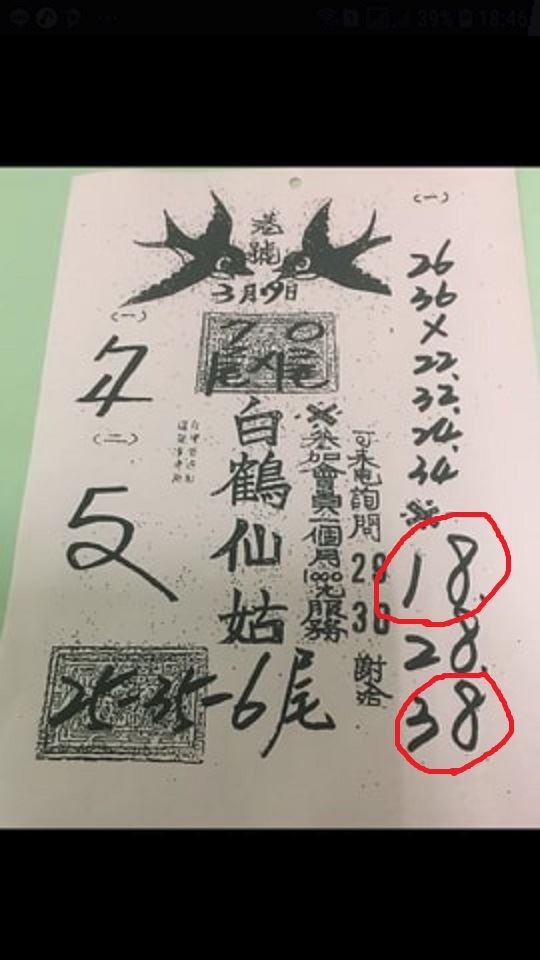 39% 18:46
港
號
3月19日
7 0
尾×尾
白鶴仙姑
※參加會員一個月1000元服務
可來電詢問
29
30
謝洽
(一)
(二)
25-35-6尾
(一)
26
36
×
22.
32.
24.
34
※
18.
28.
38